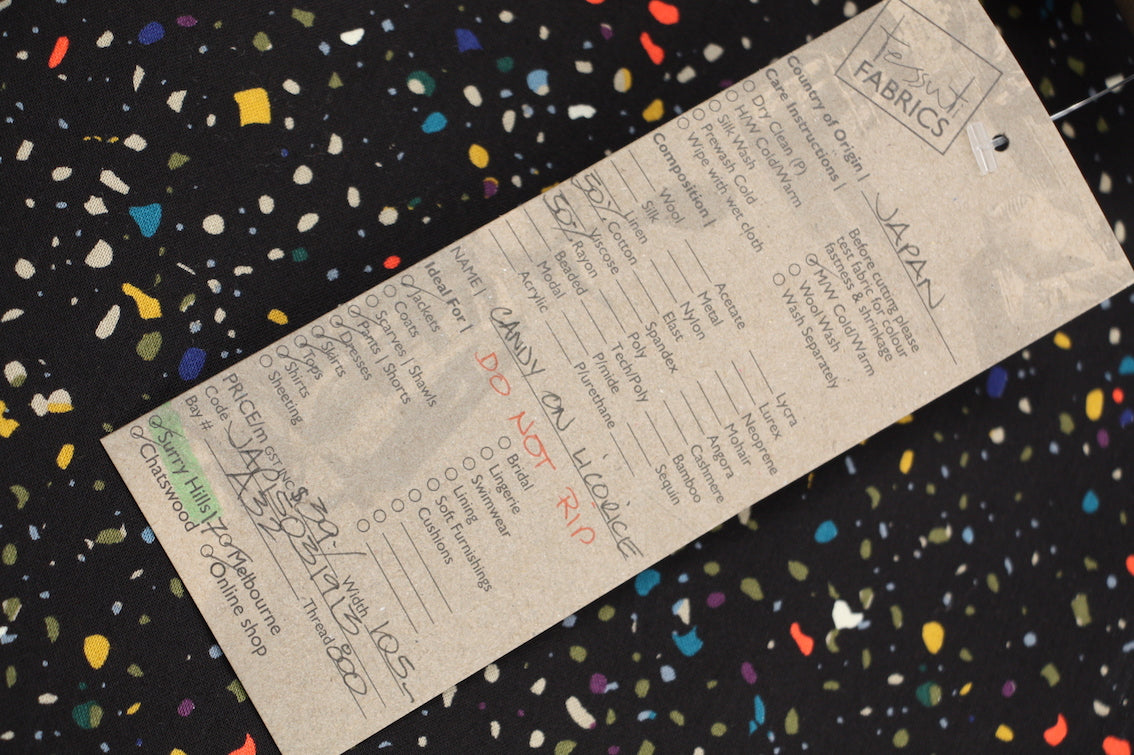 Tessuti
FABRICS
Country of Origin | JAPAN
Care Instructions |
Dry Clean (P)
H/W Cold/Warm
Silk Wash
Prewash Cold
Wipe with wet cloth
Before cutting please
test fabric for colour
fastness & shrinkage
M/W Cold/Warm
Wool Wash
Wash Separately
Composition |
Wool
Silk
Linen
50% Cotton
Viscose
50% Rayon
Beaded
Modal
Acrylic
Acetate
Metal
Nylon
Elast
Spandex
Poly
Tech/Poly
P/mide
Plurethane
Lycra
Lurex
Neoprene
Mohair
Angora
Cashmere
Bamboo
Sequin
NAME | CANDY ON LICORICE
DO NOT RIP
Ideal For |
Jackets
Coats
Scarves | Shawls
Pants | Shorts
Dresses
Skirts
Tops
Shirts
Sheeting
Bridal
Lingerie
Swimwear
Lining
Soft Furnishings
Cushions
PRICE/m GST INC $ 39/ Width 105
Code Thread 800
Bay # A32
Surry Hills 17 Melbourne
Chatswood Online shop